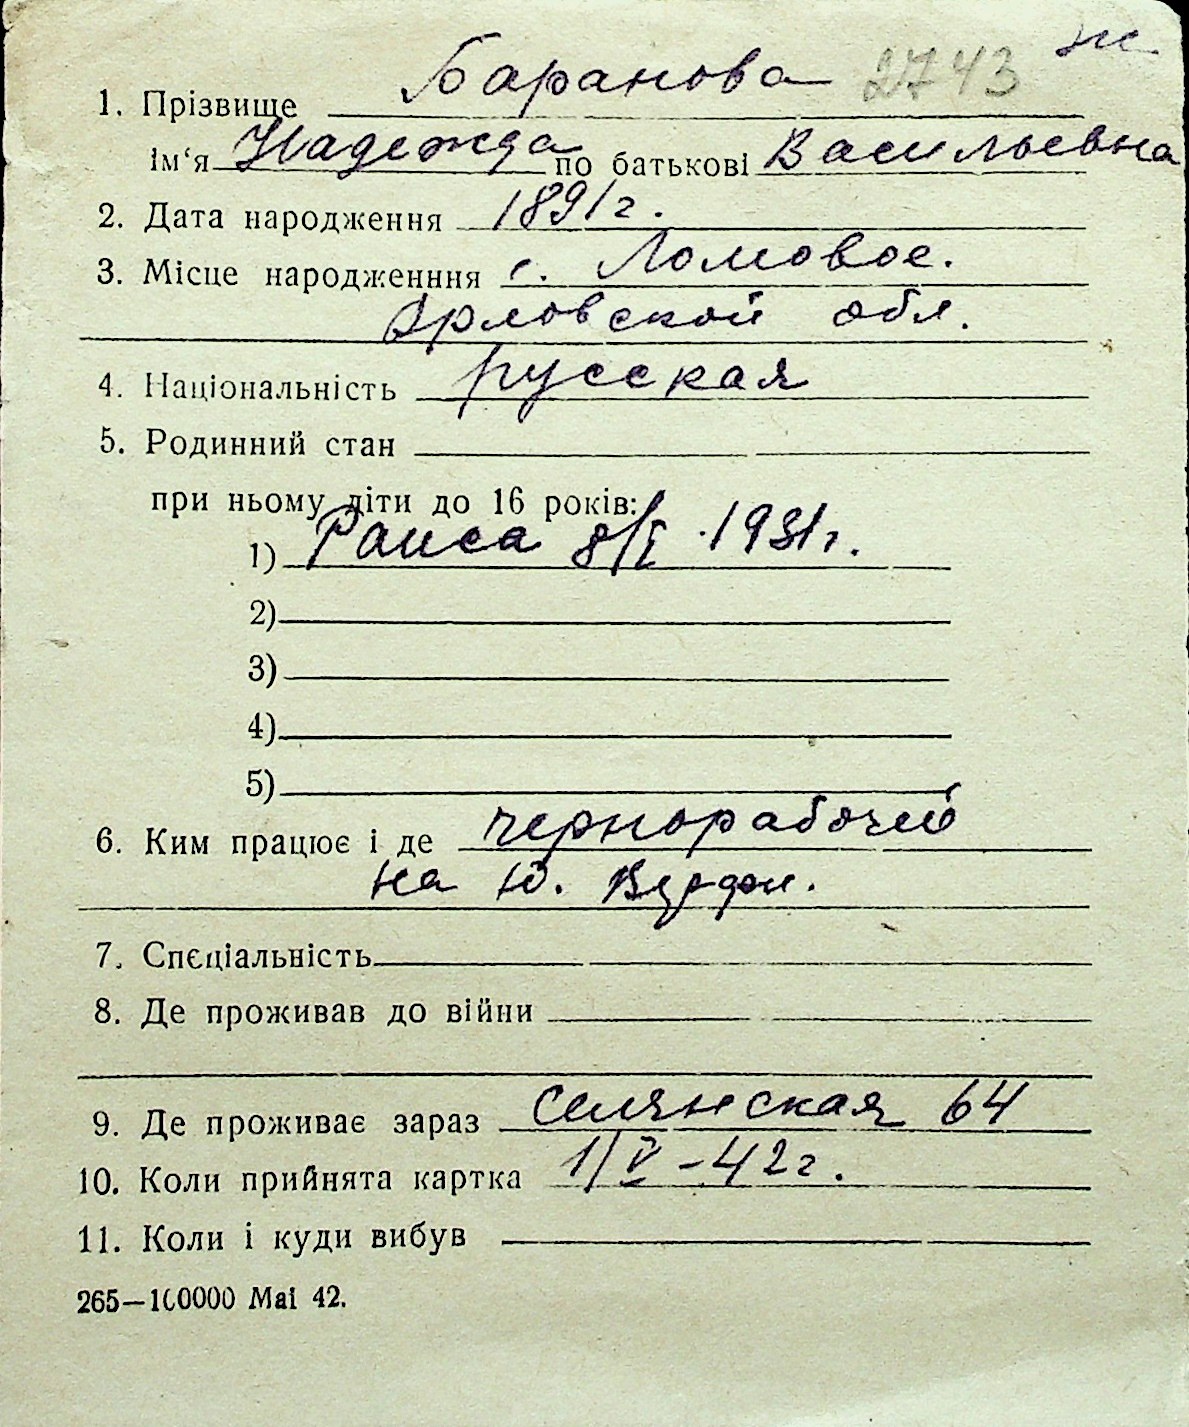 2743 ж
1. Прізвище Баранова
Ім‘я Надежда по батькові Васильевна
2. Дата народження 1891 г.
3. Місце народженння с. Ломовое.
Орловской обл.
4. Національність русская
5. Родинний стан
при ньому діти до 16 років:
1) Раиса 8/I 1931 г.
2)
3)
4)
5)
6. Ким працює і де чернорабочей
на Ю.
7. Спєціальність
8. Де проживав до війни
9. Де проживає зараз Селянская 64
10. Коли прийнята картка 1/V – 42 г.
11. Коли і куди вибув
265—100000 Mai 42.